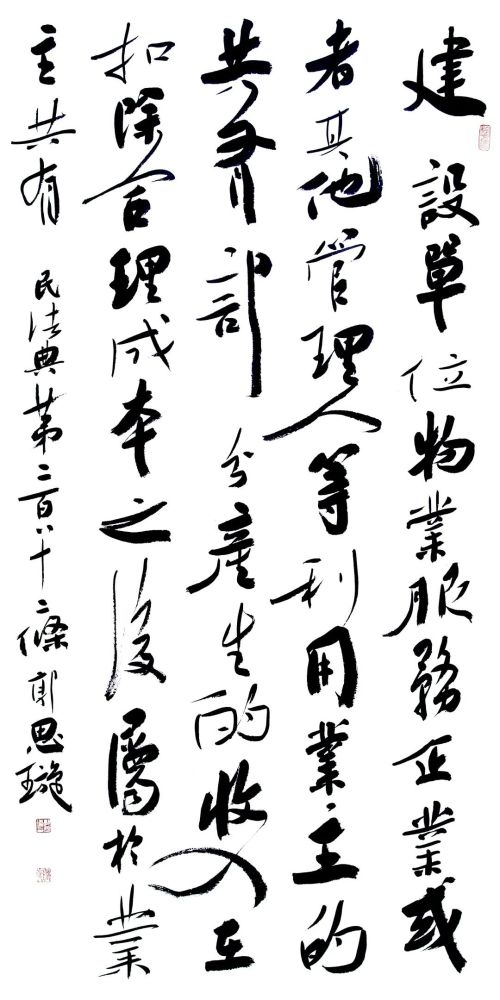 建設單位物業服務企業或
者其他管理人等利用業主的
共有部分產生的收入在
扣除合理成本之後屬於業
主共有 民法典第二百八十二條 郭思璇